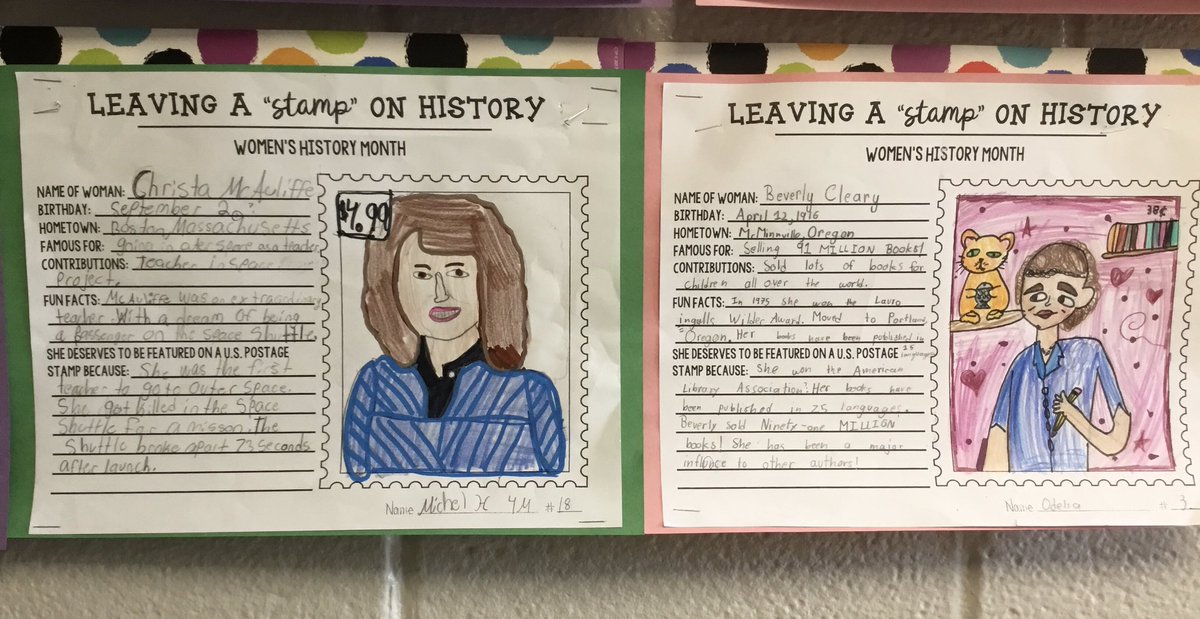 LEAVING A "stamp" ON HISTORY
WOMEN'S HISTORY MONTH
NAME OF WOMAN: Christa McAuliffe
BIRTHDAY: September 2
HOMETOWN: Boston Massachusetts
FAMOUS FOR: going in outer space as a teacher
CONTRIBUTIONS: Teacher in space
Project.
FUN FACTS: McAuliffe was an extraordinary
teacher. With a dream of being
a Passenger on the space Shuttle.
SHE DESERVES TO BE FEATURED ON A U.S. POSTAGE
STAMP BECAUSE: She was the first
teacher to go to Outer Space.
She got killed in the Space
Shuttle for a misson. The
Shuttle broke apart 73 seconds
after launch.
$4.99
Name Michel H 4M #18
LEAVING A "stamp" ON HISTORY
WOMEN'S HISTORY MONTH
NAME OF WOMAN: Beverly Cleary
BIRTHDAY: April 12, 1916
HOMETOWN: McMinnville, Oregon
FAMOUS FOR: Selling 91 MILLION Books!
CONTRIBUTIONS: Sold lots of books for
children all over the world.
FUN FACTS: In 1975 she won the Laura
ingulls Wilder Award. Moved to Portland,
Oregon. Her books have been published in
25 languages
SHE DESERVES TO BE FEATURED ON A U.S. POSTAGE
STAMP BECAUSE: She won the American
Library Association. Her books have
been published in 25 languages.
Beverly sold Ninety-one MILLION
books! She has been a major
influnce to other authors!
38¢
Name Odelia # 3